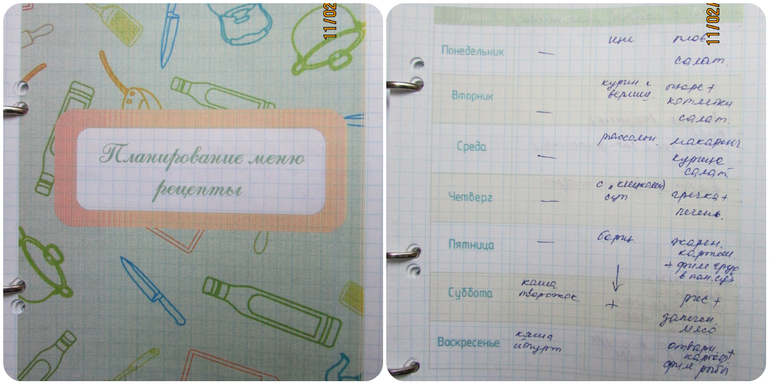 11/02
Планирование меню
рецепты
11/02/
Понедельник — щи плов
салат.
Вторник — курин. с вермиш пюре +
котлеты
салат.
Среда — рассольн. макарон.
курица
салат
Четверг — с "клецками" суп гречка +
печень
Пятница — борщ жарен.
картош.
+ филе груд
в пан. сух
Суббота каша творожок + рис +
запечен.
мясо
Воскресенье каша йогурт отварн.
картоф +
филе рыбы